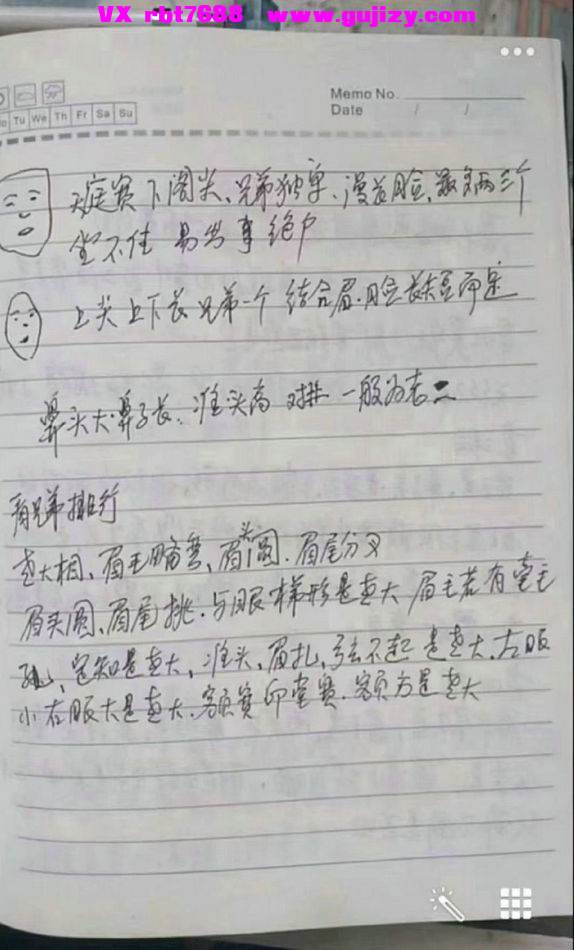 VX rbt7688 www.gujizy.com
Memo No.
Date / /
Tu We Th Fr Sa Su
天庭窄 下阁尖、兄弟独单、漫长脸、最多两三个
坐不住 易出事 绝户
上尖上下长 兄弟一个 结合眉.脸长短而定
鼻头大.鼻子长、准头高 对排 一般为老二
看兄弟排行
老大相、眉毛略弯、眉头圆.眉尾分叉
眉头圆、眉尾挑.与眼梯形是老大 眉毛若有毫毛
定知是老大, 准头,眉扎, 不起 是老大.左眼
小右眼大是老大.额宽印堂宽.额方是老大